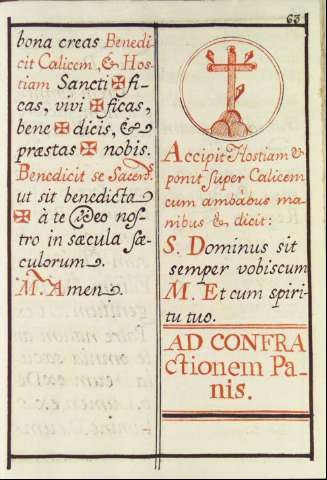 63
bona creas Benedi-
cit Calicem, & Hos-
tiam Sancti ✠ fi-
cas, vivi ✠ ficas,
bene ✠ dicis, &
præstas ✠ nobis.
Benedicit se Sacerds.
ut sit benedicta
✠ à te Deo nos-
tro in sæcula sæ-
culorum.
M. Amen.
Accipit Hostiam &
ponit super Calicem
cum ambabus ma-
nibus & dicit:
S. Dominus sit
semper vobiscum
M. Et cum spiri-
tu tuo.
AD CONFRA
ctionem Pa-
nis.